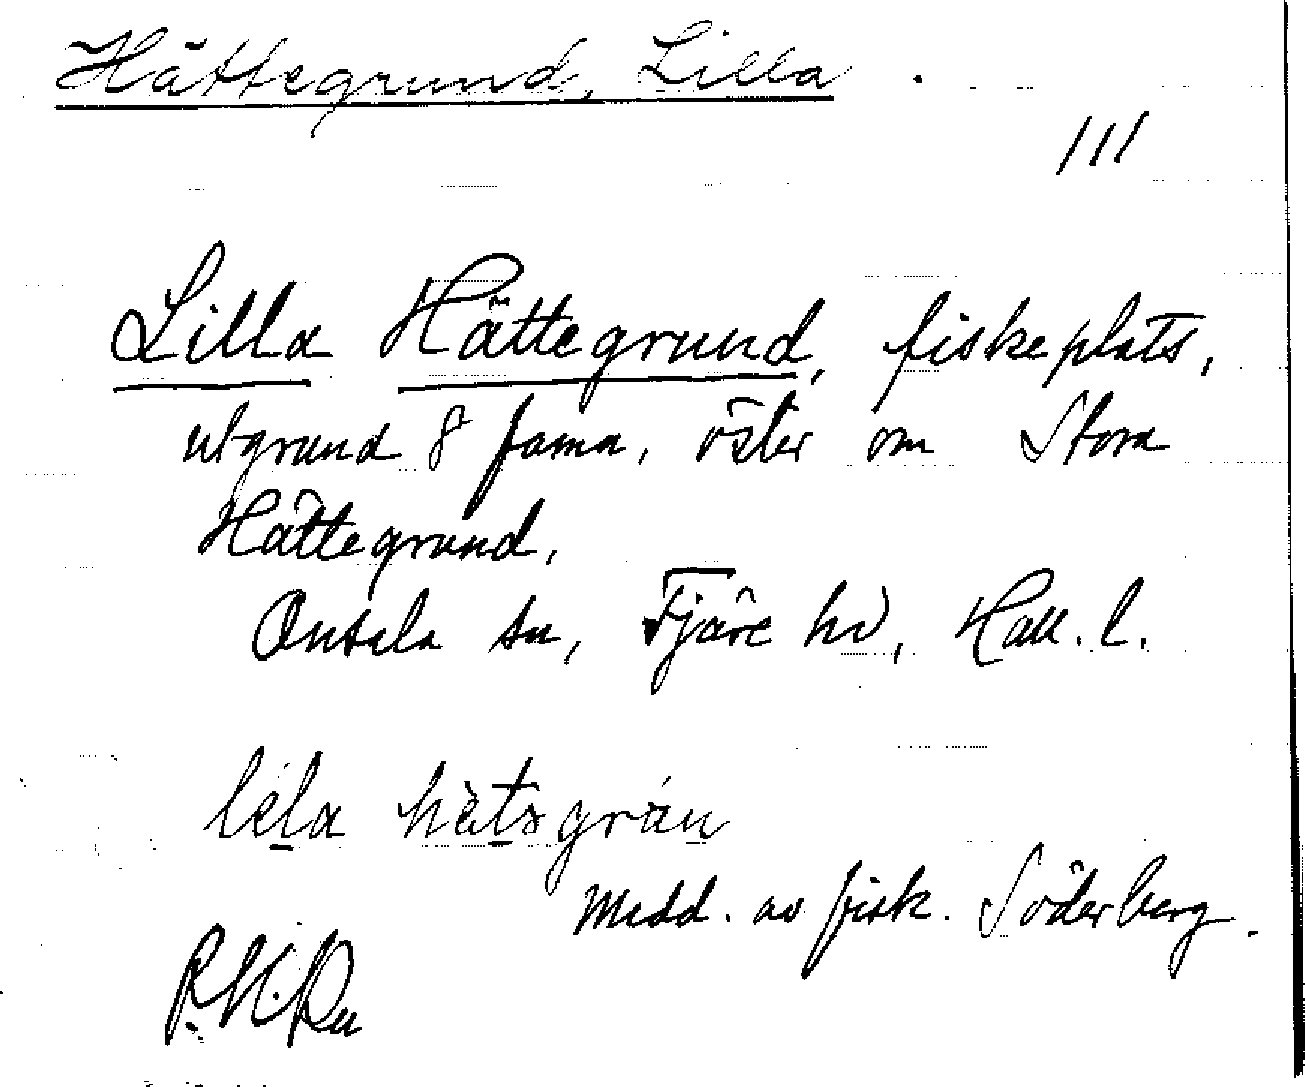 Hättegrund, Lilla.
111
Lilla Hättegrund, fiskeplats,
utgrund 8 famn, öster om Stora
Hättegrund.
Onsala sn, Fjäre hd, Hall. l.
Medd. av fisk. Söderberg.